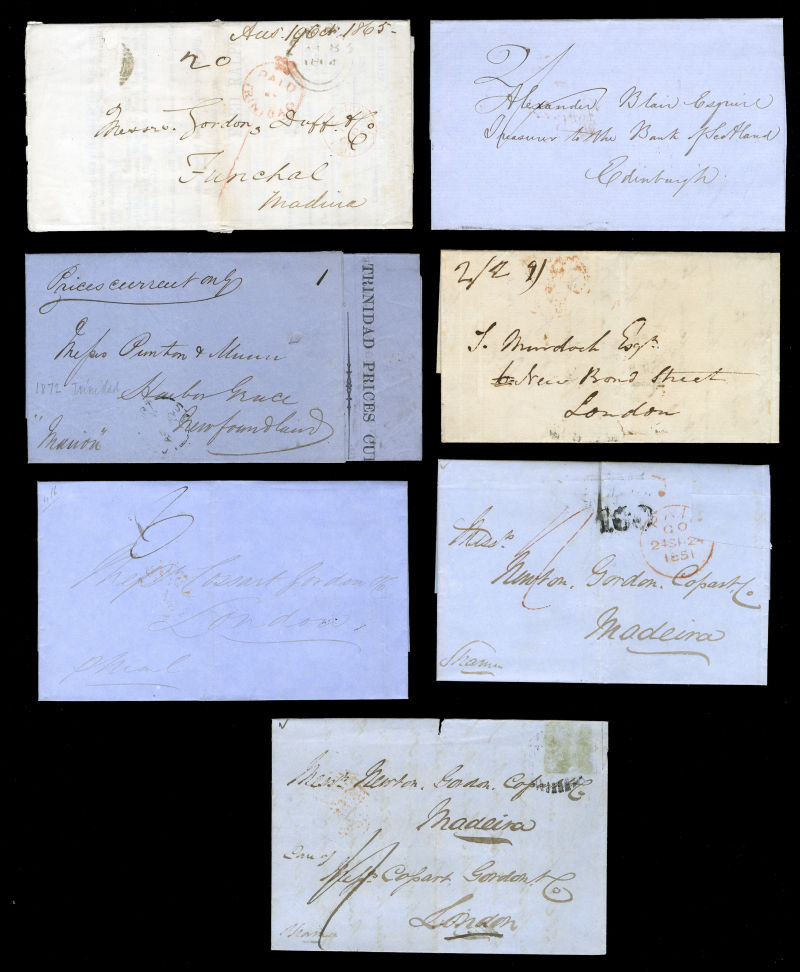 Ans. 19 Oct. 1865
20
PAID
Messrs. Gordon, Duff & Co
Funchal
Madeira
2/
Alexander Blair Esquire
Treasurer to the Bank of Scotland
Edinburgh
Prices current only
1
Messrs Punton & Munn
Harbor Grace
Newfoundland
1872 Trinidad
"Marion"
TRINIDAD PRICES CUR
2/2
J. Murdoch Esqr.
New Bond Street
London
Messrs Cossart Gordon & Co
London
p Neal
Messrs
Newton, Gordon, Cossart & Co
Madeira
Steamer
GO
24 SP 24
1851
Messrs Newton, Gordon, Cossart & Co
Madeira
Care of
Messrs Cossart Gordon & Co
London